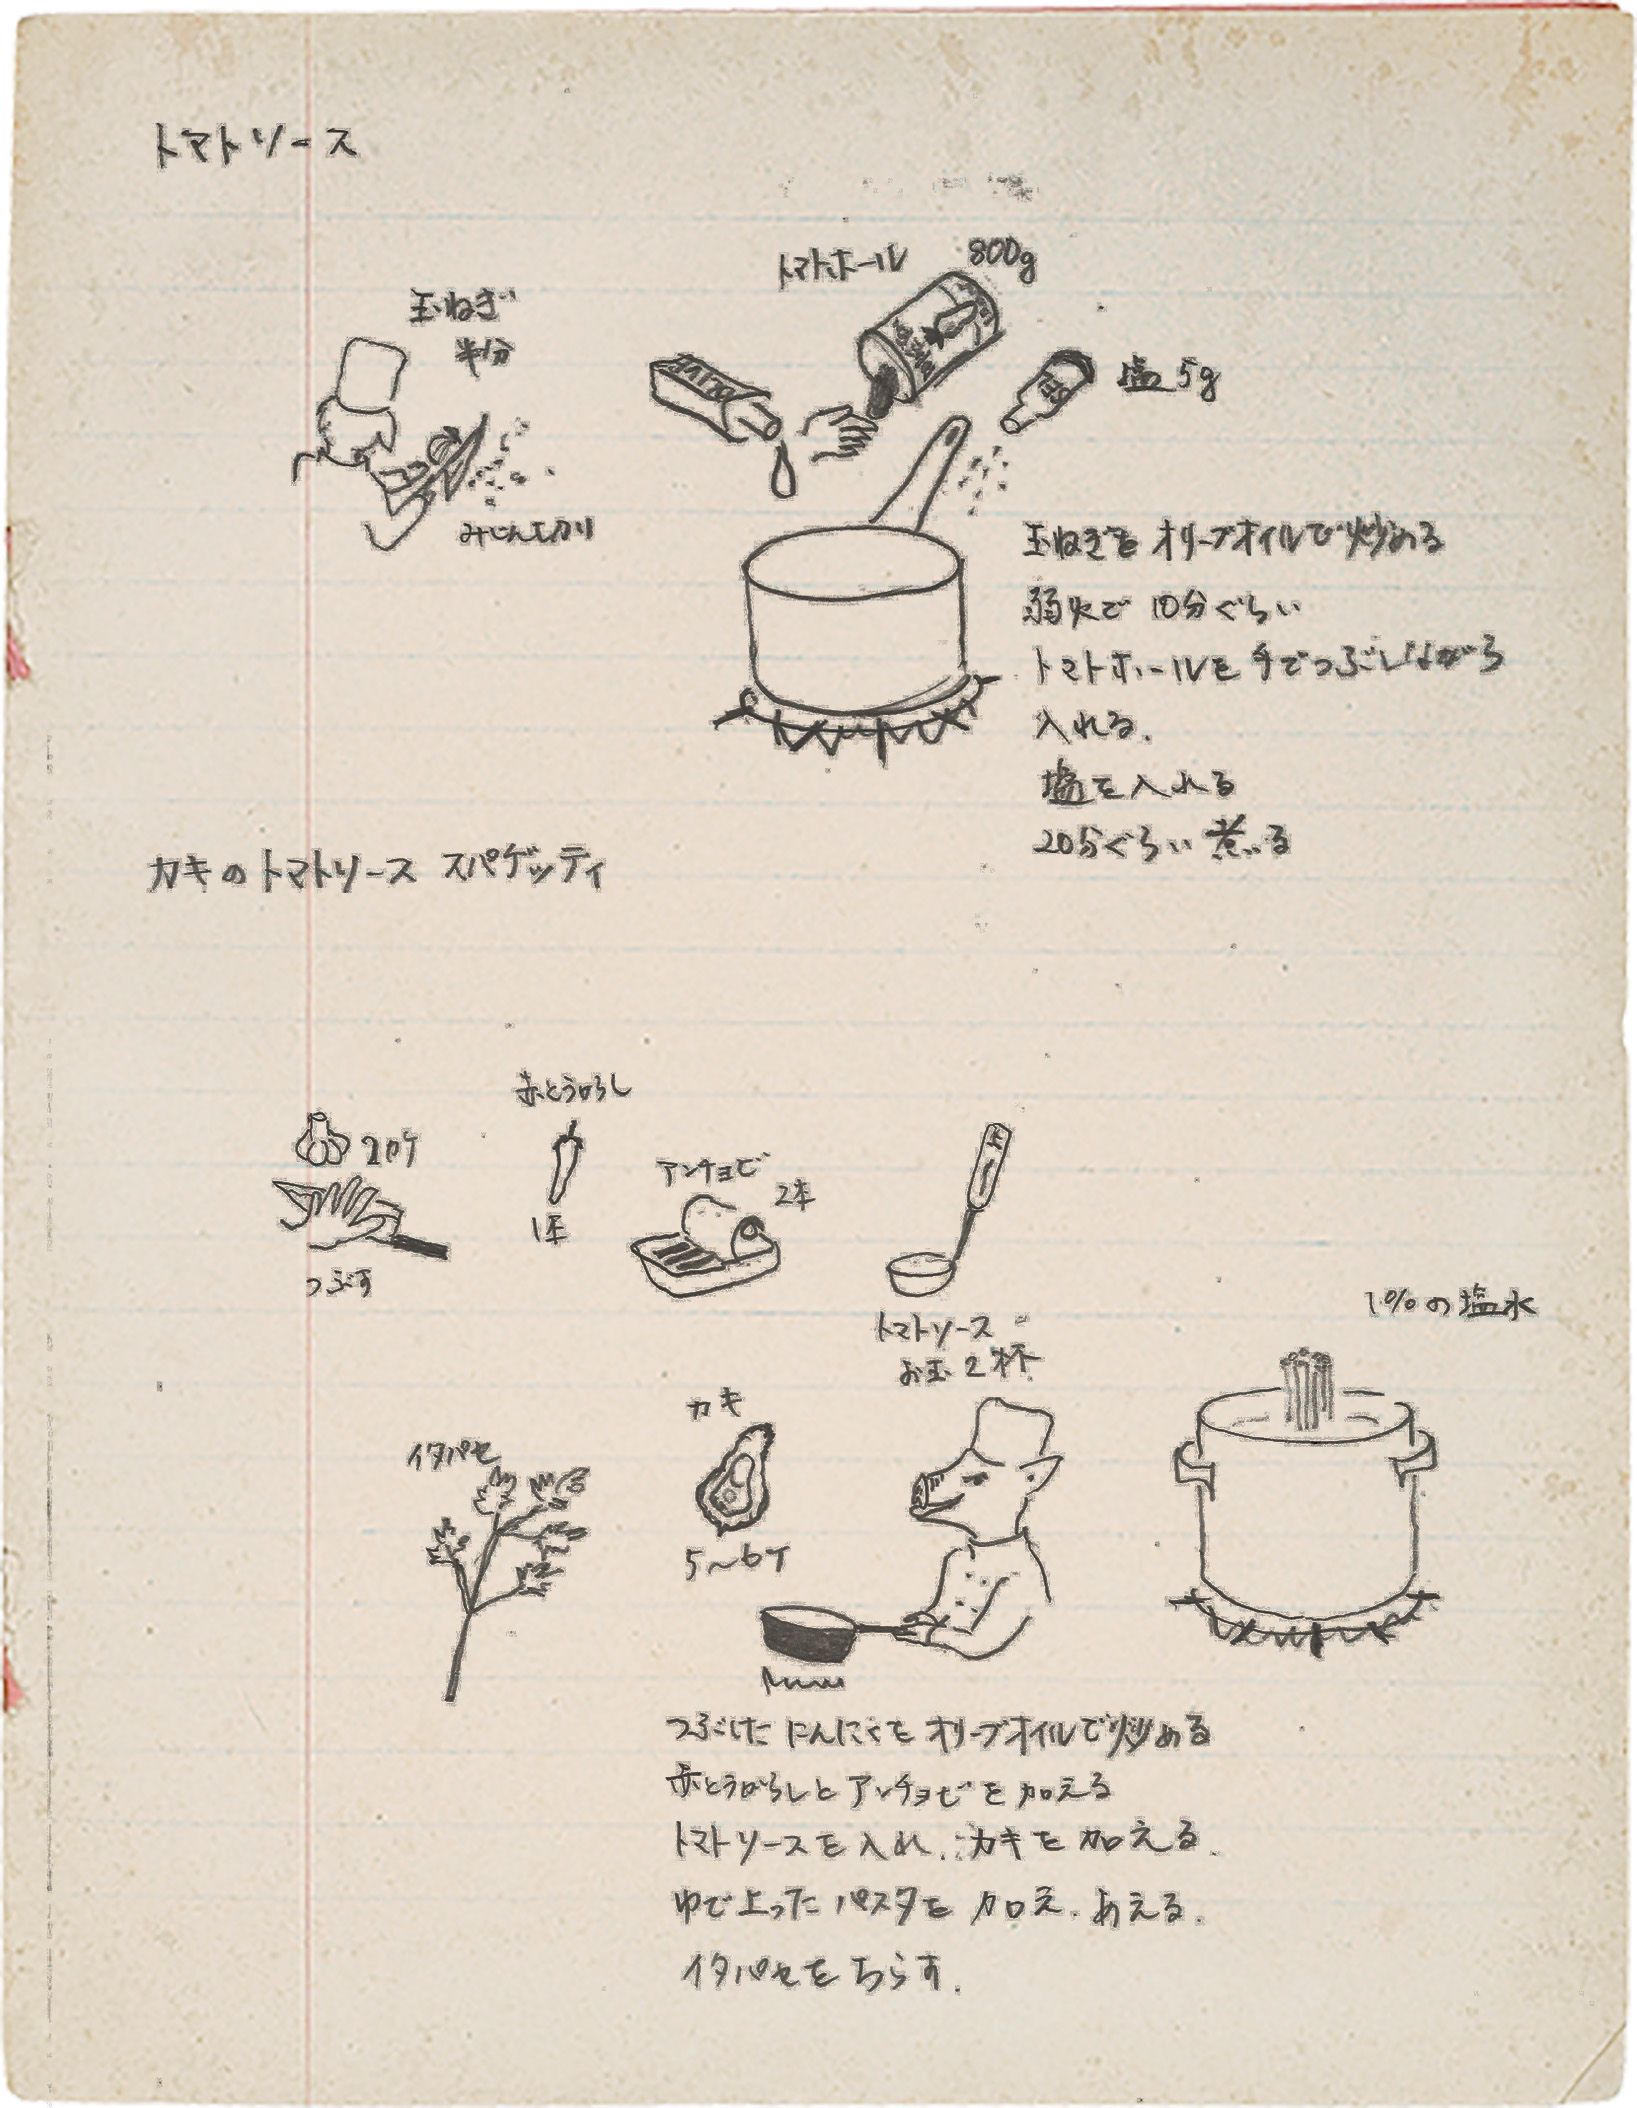 トマトソース
トマトホール 800g
玉ねぎ
半分
塩 5g
みじん切り
玉ねぎを オリーブオイルで炒める
弱火で 10分ぐらい
トマトホールを手でつぶしながら
入れる.
塩を入れる
20分ぐらい煮る
カキのトマトソース スパゲッティ
赤とうがらし
2ケ
1本
つぶす
アンチョビ
2本
トマトソース
お玉 2杯
1%の塩水
イタパセ
カキ
5〜6ケ
つぶした にんにくを オリーブオイルで炒める
赤とうがらしと アンチョビを 加える
トマトソースを 入れ. カキを 加える.
ゆで上った パスタを 加え. あえる.
イタパセを ちらす.